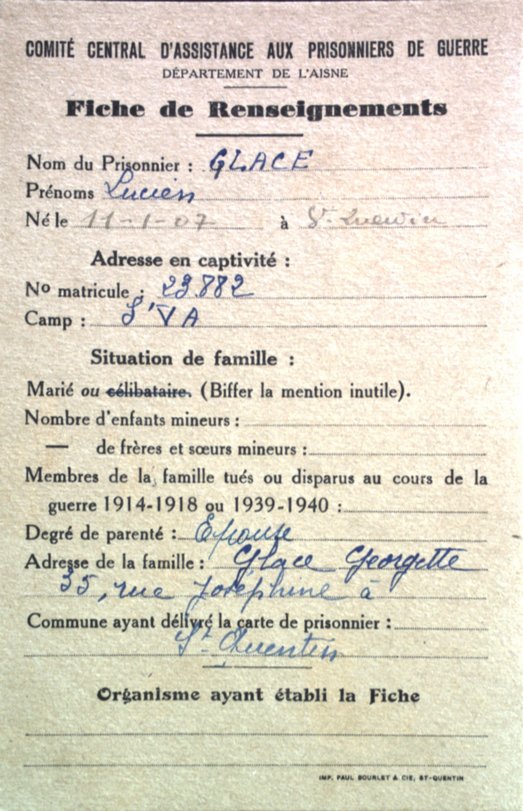 COMITÉ CENTRAL D'ASSISTANCE AUX PRISONNIERS DE GUERRE
DÉPARTEMENT DE L'AISNE
Fiche de Renseignements
Nom du Prisonnier : GLACE
Prénoms Lucien
Né le 11-1-07 à St.
Adresse en captivité :
No matricule : 23.882
Camp : S' VA
Situation de famille :
Marié ou célibataire. (Biffer la mention inutile).
Nombre d'enfants mineurs :
— de frères et sœurs mineurs :
Membres de la famille tués ou disparus au cours de la
guerre 1914-1918 ou 1939-1940 :
Degré de parenté : Epouse
Adresse de la famille : Glace Georgette
35, rue Joséphine à
Commune ayant délivré la carte de prisonnier :
St Quentin
Organisme ayant établi la Fiche
IMP. PAUL BOURLET & CIE, ST-QUENTIN